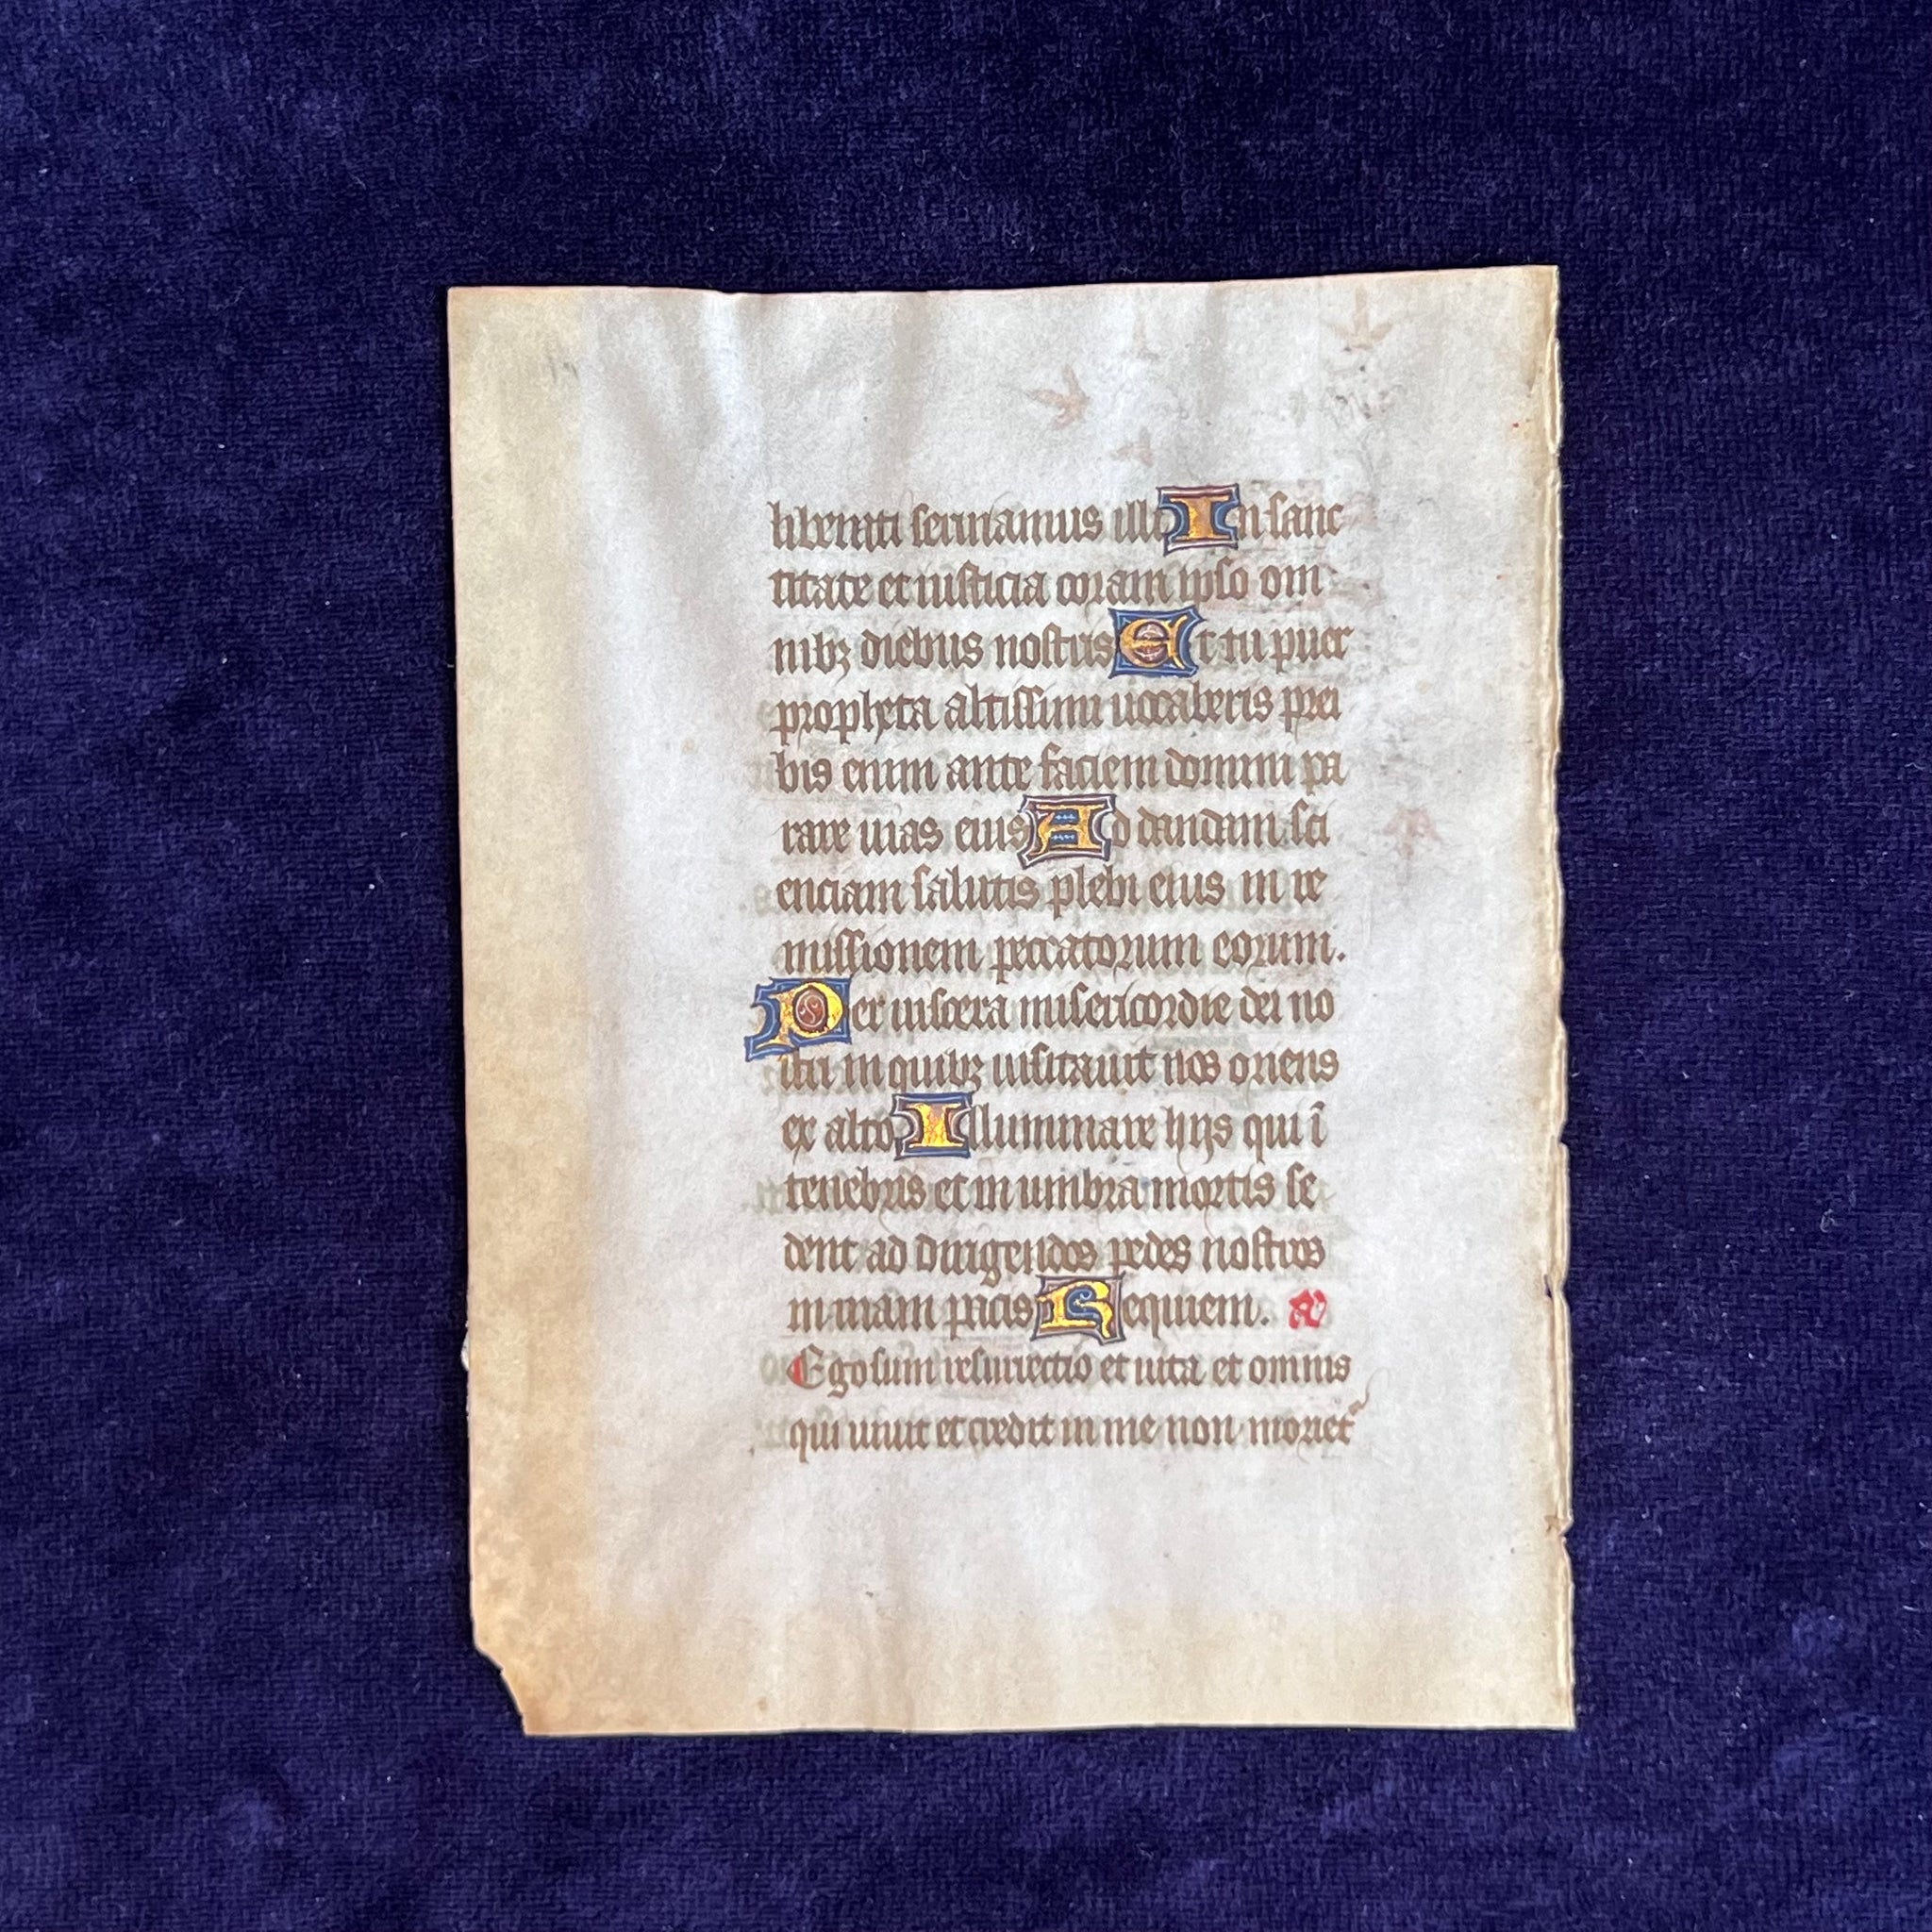 liberati seruiamus illi In sanc
titate et iusticia coram ipso om
nibꝫ diebus nostris Et tu puer
propheta altissimi uocaberis prei
bis enim ante faciem domini pa
rare uias eius Ad dandam sci
enciam salutis plebi eius in re
missionem peccatorum eorum.
Per uiscera misericordie dei no
stri in quibꝫ uisitauit nos oriens
ex alto Illuminare hijs qui ī
tenebris et in umbra mortis se
dent ad dirigendos pedes nostros
in uiam pacis Requiem. a͞
Ego sum resurrectio et uita et omnis
qui uiuit et credit in me non morietʳ